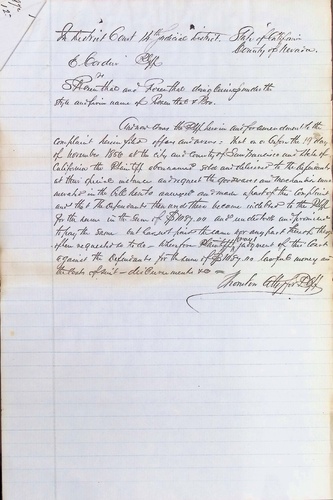 In District Court 14th Judicial District State of California
County of Nevada
E. Cordier Plff
vs
Rosenthal and Rosenthal doing business under the
style and firm name of Rosenthal & Bro.
And now comes the Plff herein and for amendment to the
complaint herein filed offers and avers: That on or before the 19 day
of November 1856 at the city and county of San Francisco and State of
California the Plaintiff abovenamed sold and delivered to the defendants
at their special instance and request the goods wares and merchandise
in the bill hereto annexed and made a part of this complaint
and that the defendants then and there became indebted to the Plff
for the same in the sum of and undertook and promised
to pay the same but have not paid the same nor any part thereof though
often requested so to do — wherefore Plaintiff prays judgment of this Court
against the Defendants for the sum of lawful money and
the costs of suit — disbursements &c —
Atty for Plff